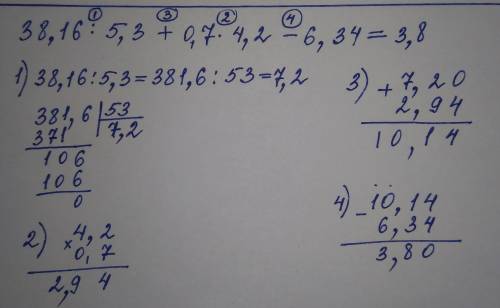 ① ③ ② ④
38,16 : 5,3 + 0,7 · 4,2 − 6,34 = 3,8
1) 38,16 : 5,3 = 381,6 : 53 = 7,2
381,6 | 53
371 | 7,2
106
106
0
2) × 4,2
0,7
2,94
3) + 7,20
2,94
10,14
4) − 10,14
6,34
3,80